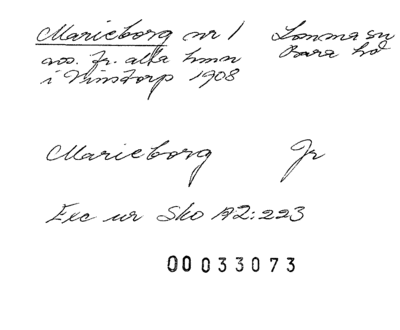 Marieborg nr 1 Lomma sn
avs. fr. alla hmn Bara hd
i Vinstorp 1908
Marieborg Jr
Exc ur Sko A2:223
00033073